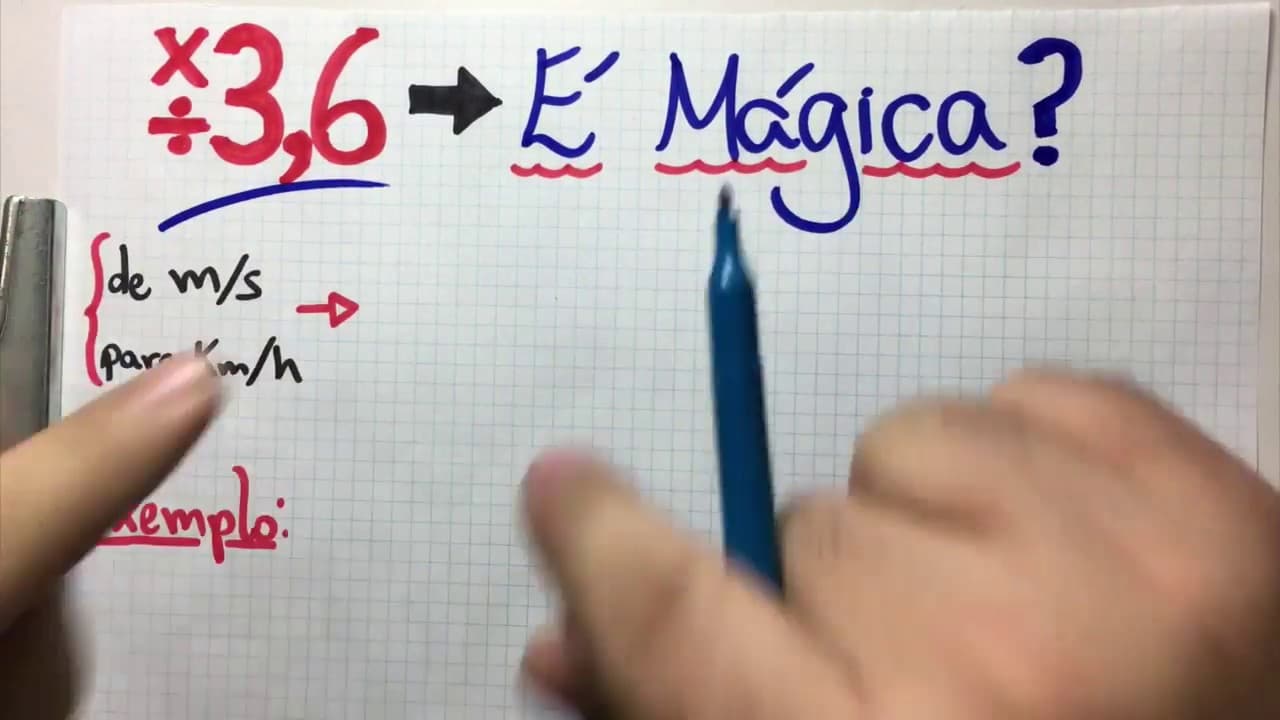 ×
÷ 3,6 → É Mágica?
de m/s →
para Km/h
Exemplo: